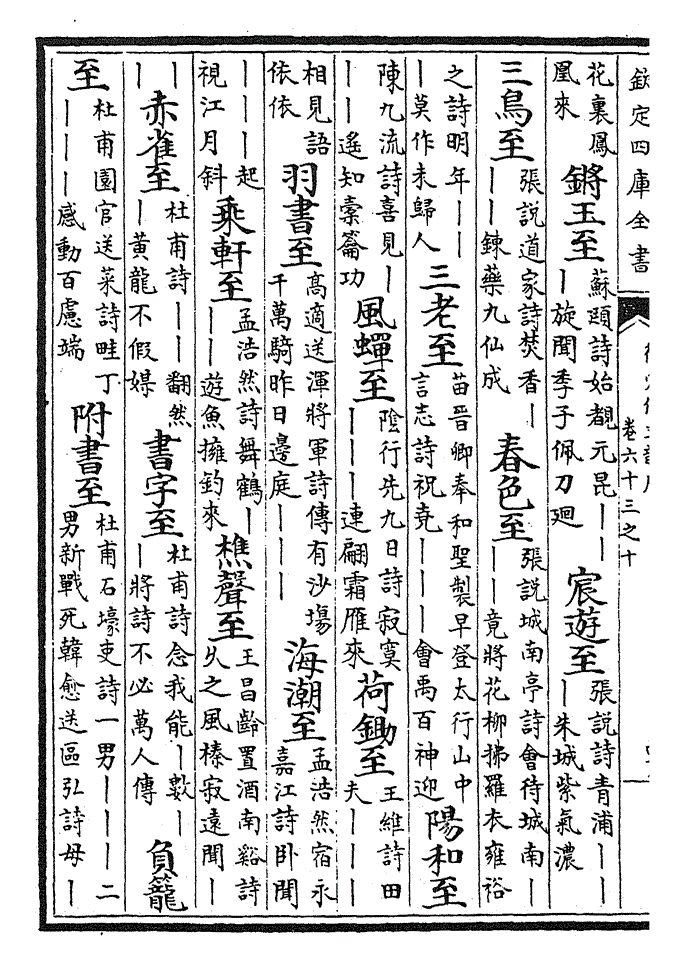 欽定四庫全書
卷六十三之十
花裏鳳凰來 鏘玉至 蘇頲詩始覩元昆｜｜｜旋聞季子佩刀廻 宸遊至 張說詩青浦｜｜｜朱城紫氣濃
三鳥至 張說道家詩焚香｜｜｜鍊藥九仙成 春色至 張說城南亭詩會待城南｜｜｜竟將花柳拂羅衣雍裕
之詩明年｜｜｜莫作未歸人 三老至 苗晉卿奉和聖製早登太行山中言志詩祝堯｜｜｜會禹百神迎 陽和至
陳九流詩喜見｜｜｜遙知橐籥功 風蟬至 陰行先九日詩寂寞｜｜｜連翩霜雁來 荷鋤至 王維詩田夫｜｜｜
相見語依依 羽書至 高適送渾將軍詩傳有沙塲千萬騎昨日邊庭｜｜｜ 海潮至 孟浩然宿永嘉江詩卧聞
｜｜｜起視江月斜 乘軒至 孟浩然詩舞鶴｜｜｜遊魚擁釣來 樵聲至 王昌齡置酒南谿詩久之風榛寂遠聞｜
｜｜ 赤雀至 杜甫詩｜｜翻然｜黃龍不假媒 書字至 杜甫詩念我能｜數｜｜將詩不必萬人傳 負籠
至 杜甫園官送菜詩畦丁｜｜｜感動百慮端 附書至 杜甫石壕吏詩一男｜｜｜二男新戰死韓愈送區弘詩母｜